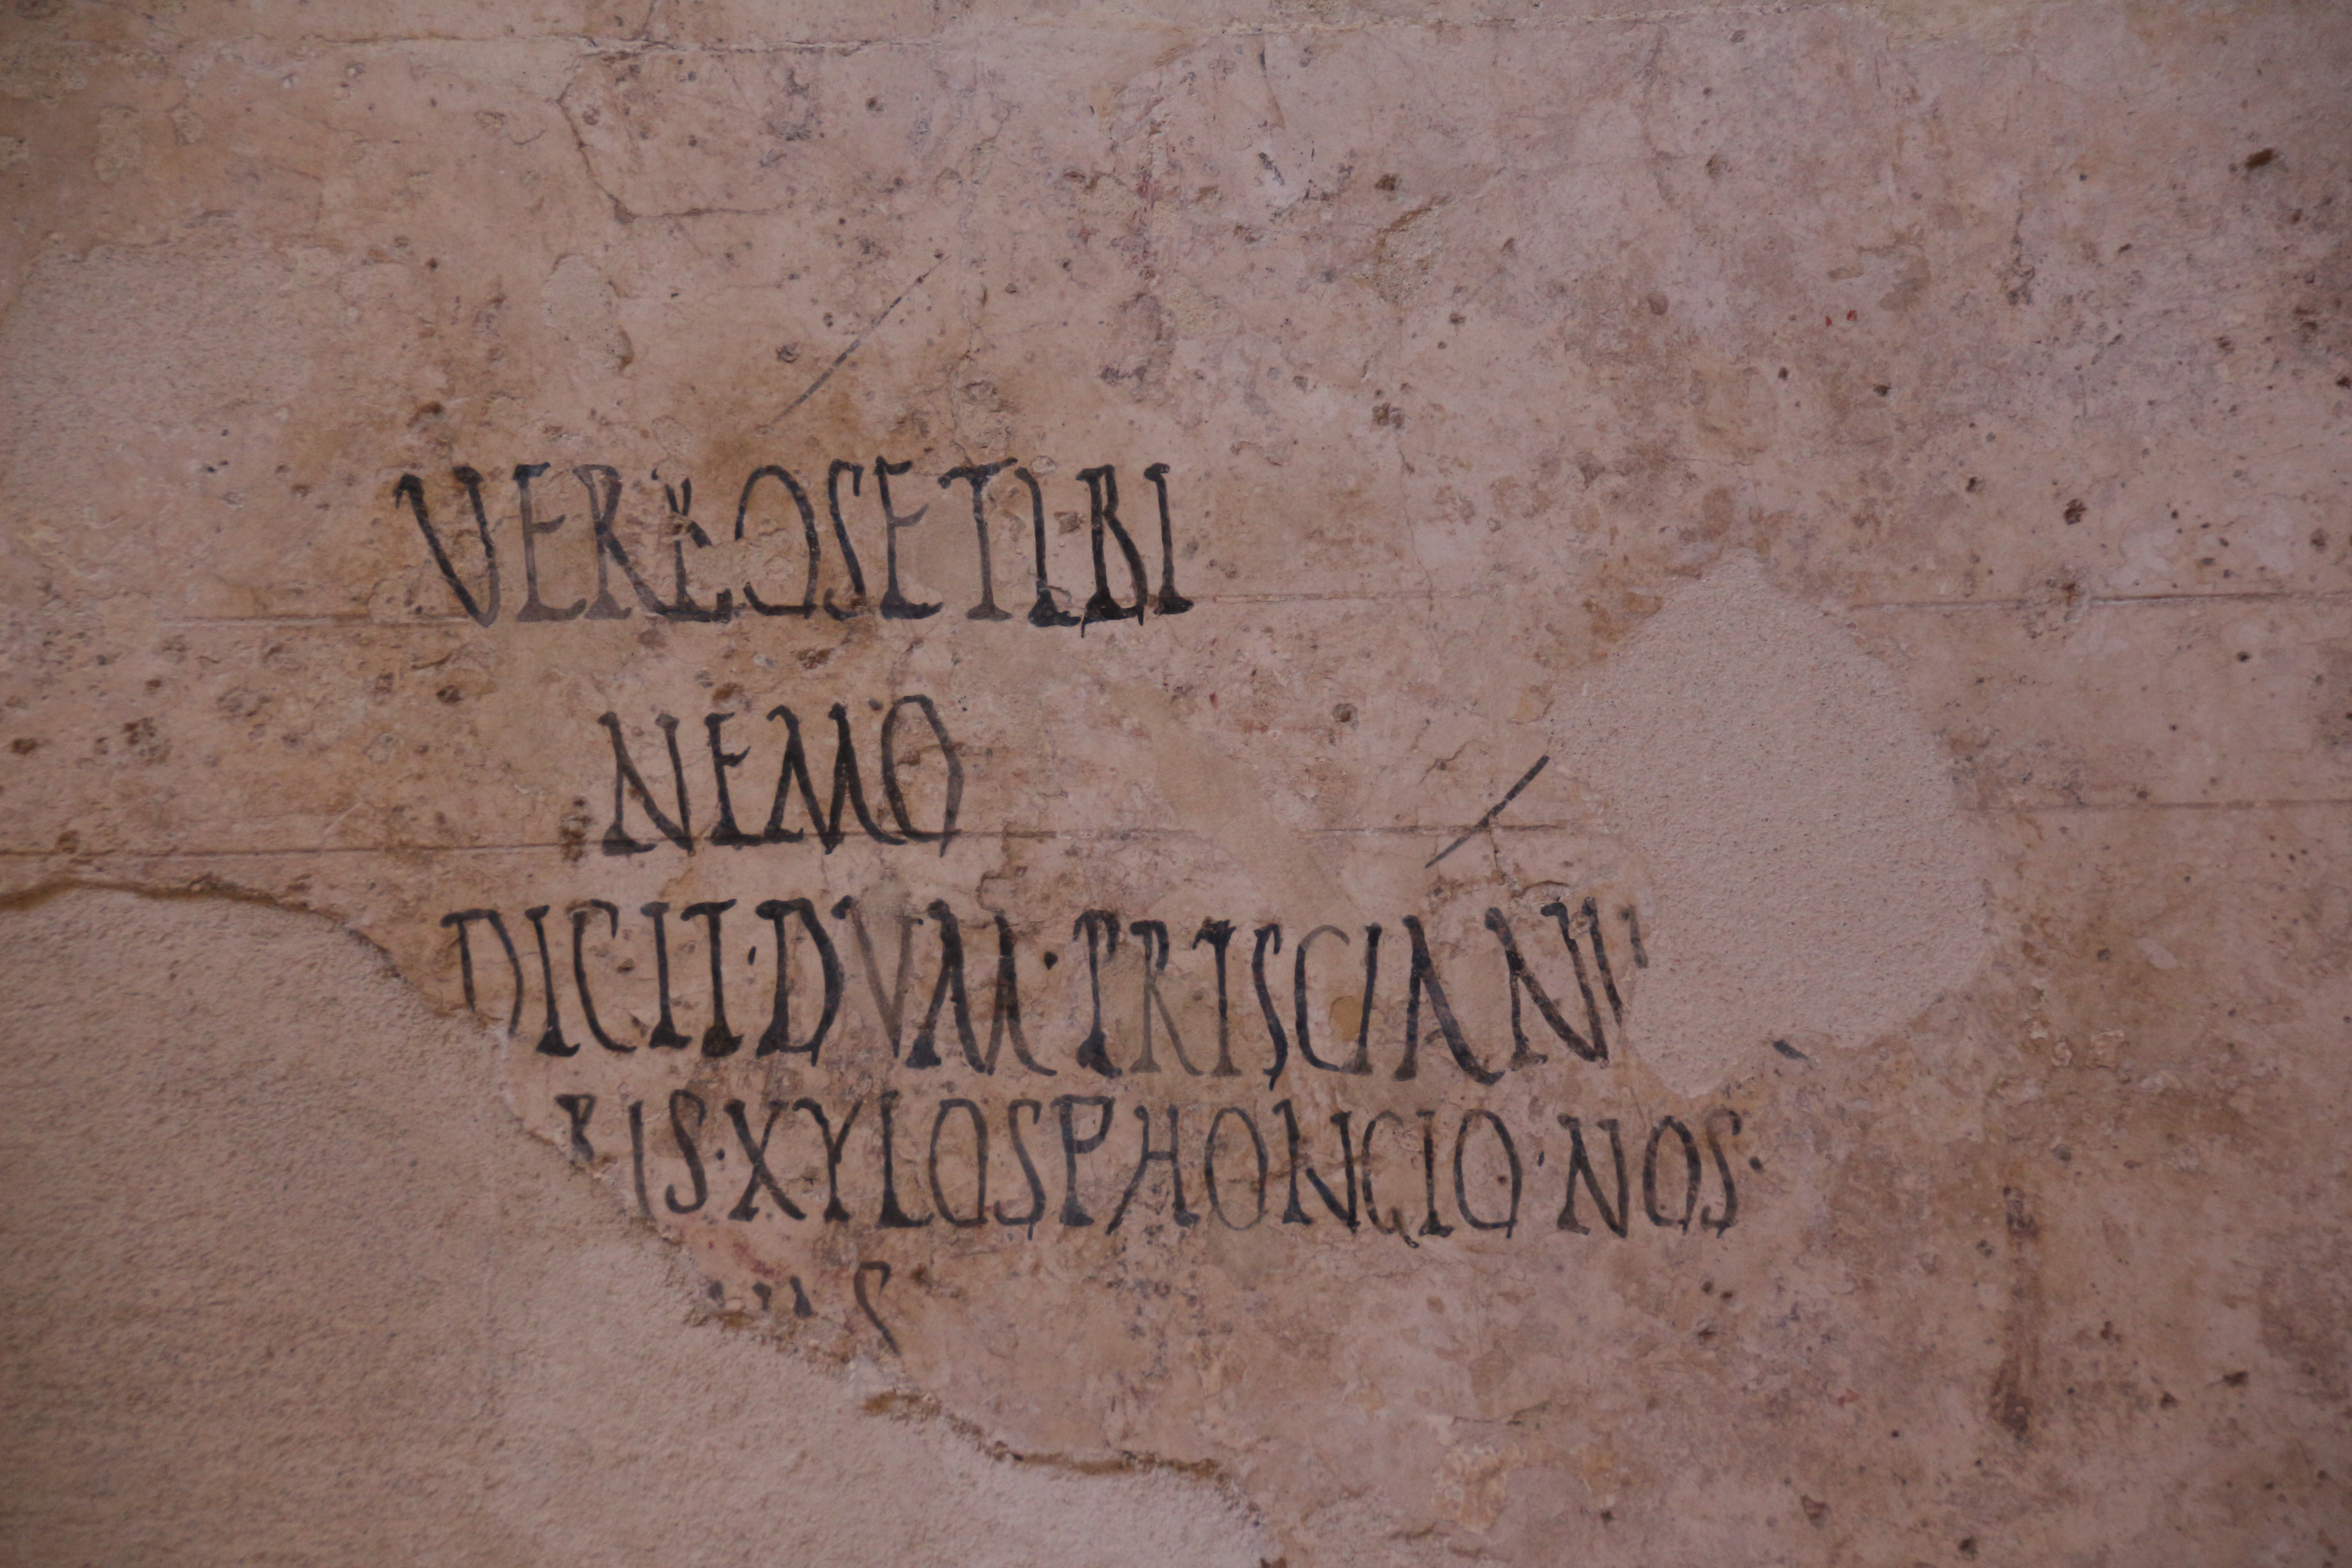 VERBOSE TIBI
NEMO
DICIT·DVM·PRISCIANV
RIS·XYLOSPHONGIO·NOS·
S